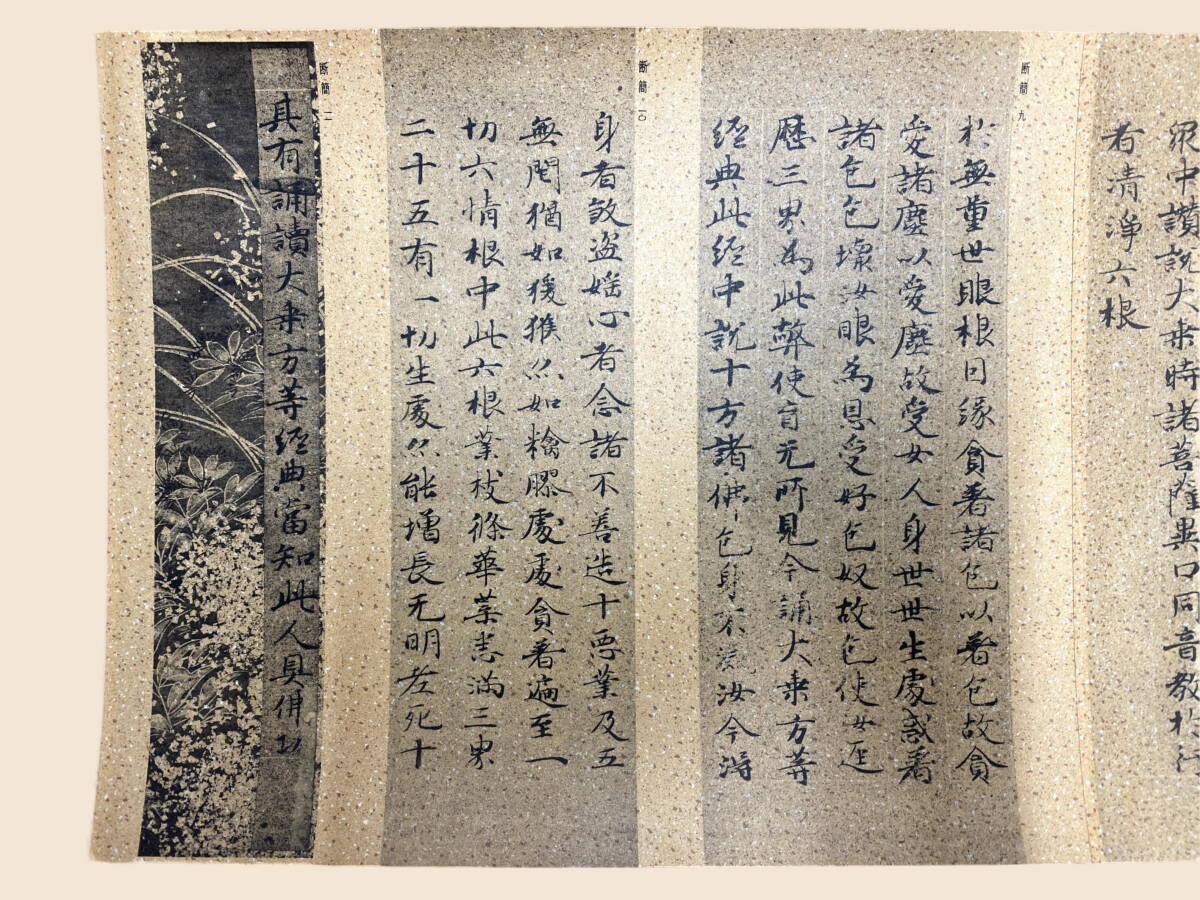 眾中讚說大乗時諸菩薩異口同音教於
者清淨六根
断簡 九
於無量世眼根因縁貪著諸色以著色故貪
愛諸塵以愛塵故受女人身世世生處惑著
諸色色壊汝眼為恩愛奴故色使汝迳
歴三界為此弊使盲无所見今誦大乗方等
經典此經中說十方諸佛色身不滅汝今得
断簡 一〇
身者敓盗婬心者念諸不善造十惡業及五
無間猶如猨猴亦如黐膠處處貪著遍至一
切六情根中此六根業枝條華葉悉満三界
二十五有一切生處亦能增長无明老死十
断簡 一一
具有誦讀大乗方等經典當知此人具佛功